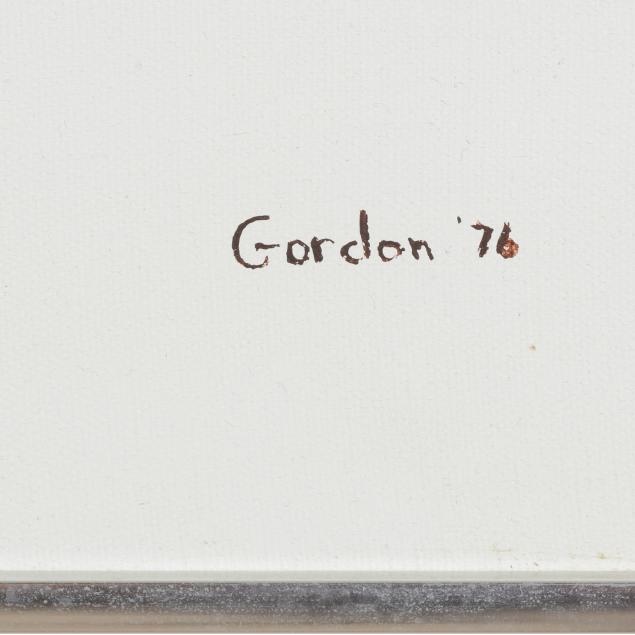 Gordon '76